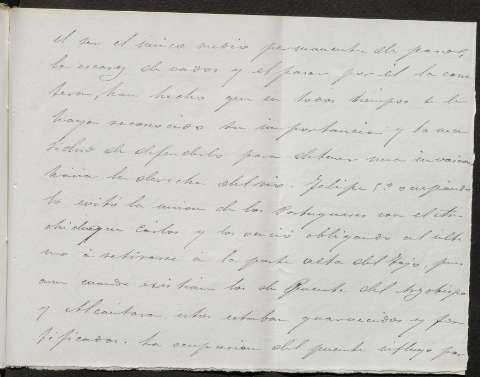 el ser el unico medio permanente de pasar,
la escasez de vados y el pasar por él la carre
tera, han hecho que en todos tiempos se le
haya reconocido su importancia y la nece
sidad de defenderlo para detener una invasion
hacia la derecha del rio. Felipe 5º ocupando
lo evitó la union de los Portugueses con el Ar
chiduque Carlos y los venció obligando al ulti
mo á retirarse á la parte alta del Tajo, pues
aun cuando existian los de Puente del Arzobispo
y Alcántara estos estaban guarnecidos y for
tificados. La ocupacion del puente influyó por